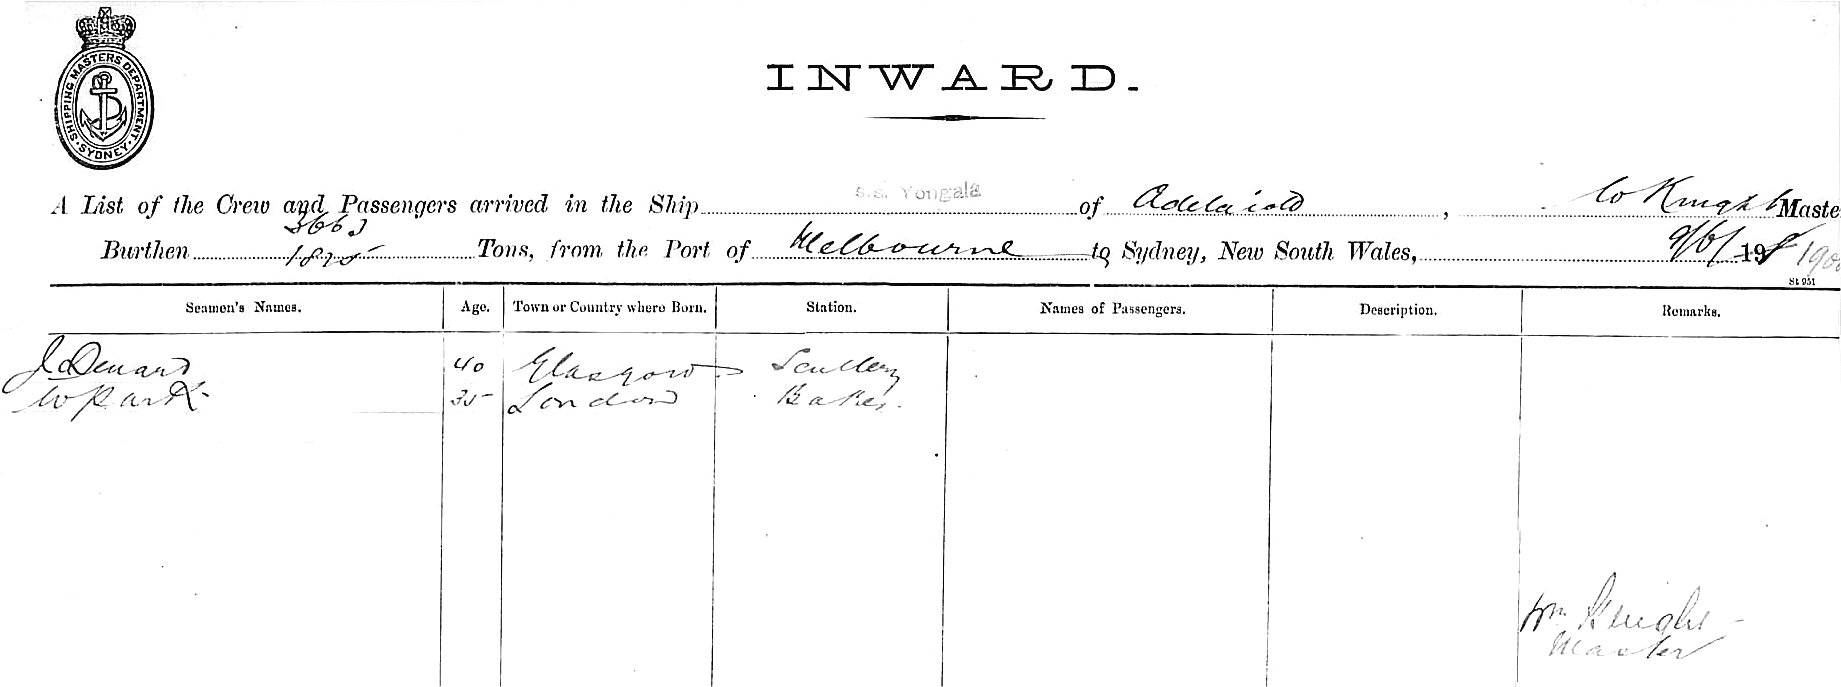 SHIPPING MASTERS DEPARTMENT. SYDNEY.
INWARD.
A List of the Crew and Passengers arrived in the Ship s.s. Yongala of Adelaide, W Knight Maste
3663
Burthen 1825 Tons, from the Port of Melbourne to Sydney, New South Wales, 9/6/ 198 190
St 951
Seamen's Names. Age. Town or Country where Born. Station. Names of Passengers. Description. Remarks.
J 40 Glasgow Scullery
W Park 35 London Baker.
Wm Knight
Master